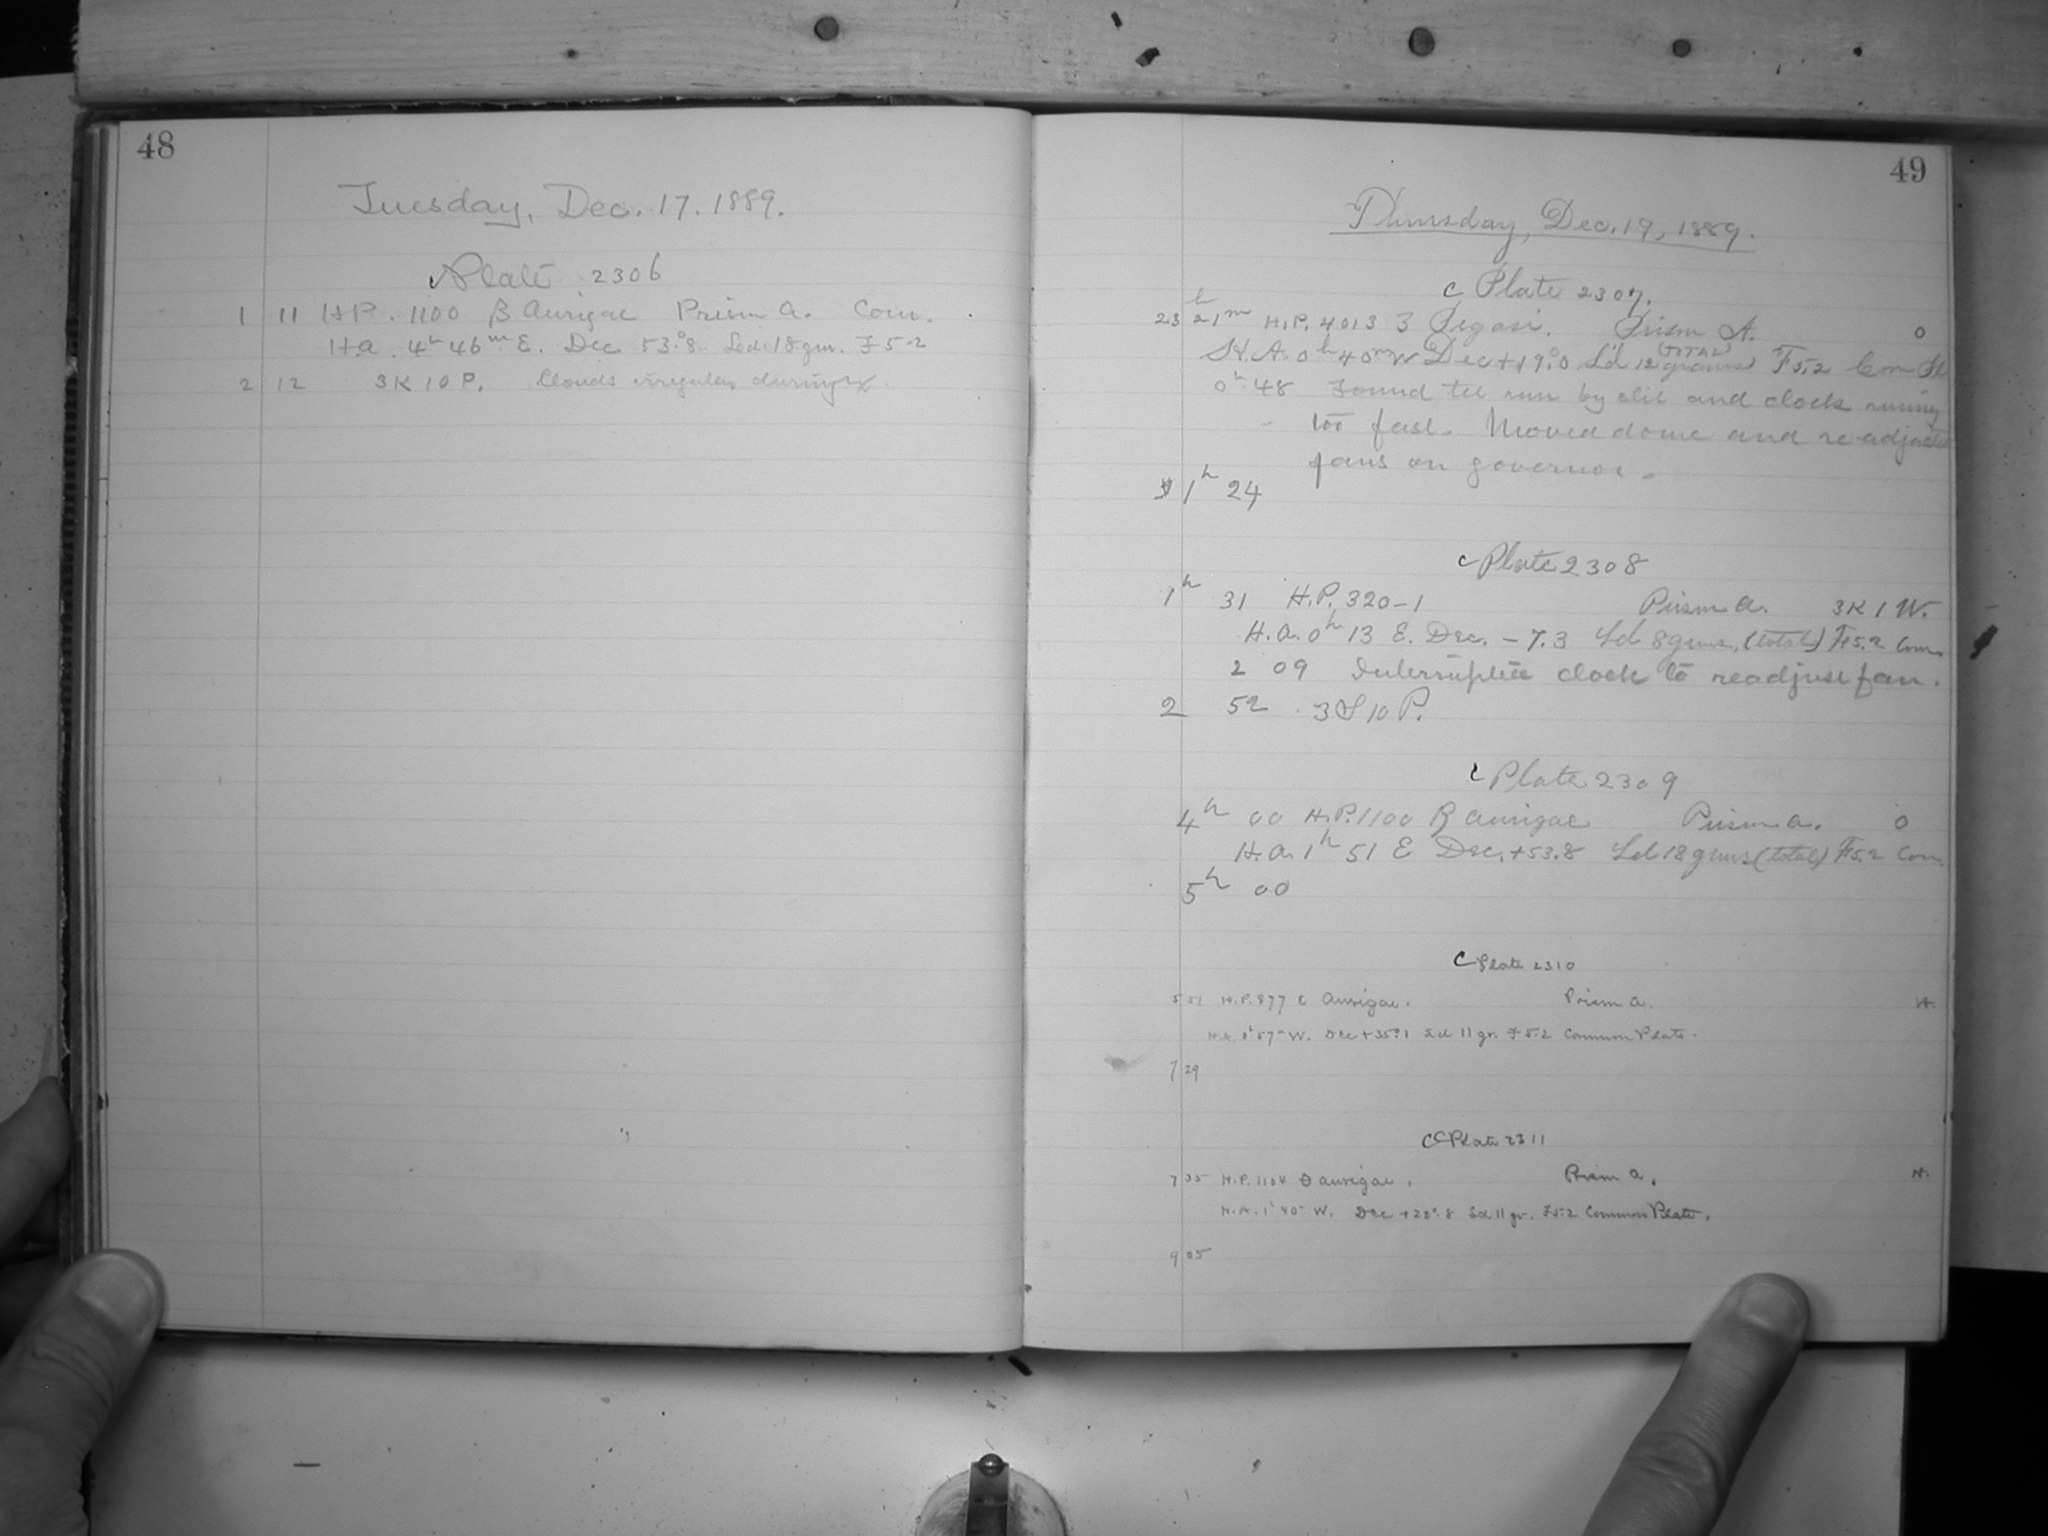 48
Tuesday, Dec. 17. 1889.
Plate 2306
1 11 H P. 1100 β Aurigae Prism A. Com.
H.a. 4h 46m E. Dec 53.°8 Led 18 gm. F 5.2
2 12 3 K 10 P. Clouds irregular during
49
Thursday, Dec. 19, 1889.
c Plate 2307.
23h 21m H.P. 4013 3 Pegasi. Prism A. 0
H.A. 0h 40m W Dec + 19.°0 L'd 12 (TOTAL) grams F 5.2 Com
0h 48 Found tel run by slit and clock running
too fast. Moved dome and re-adjusted
fans on governor.
1h 24
c Plate 2308
1h 31 H.P. 320-1 Prism a. 3 K 1 W.
H.a. 0h 13 E. Dec. - 7.3 Ld 8 gms. (total) F 5.2 Com.
2 09 Interrupted clock to readjust fan.
2 52 3 S 10 P.
c Plate 2309
4h 00 H.P. 1100 β aurigae Prism a. 0
H.a. 1h 51 E Dec. +53.8 Ld 18 gms (total) F 5.2 Com.
5h 00
C Plate 2310
5 51 H.P. 877 c Aurigae. Prism a. W.
H.A. 0h 57m W. Dec + 35°.1 Ld 11 gr. F 5.2 Common Plate.
7 29
C Plate 2311
7 35 H.P. 1104 θ aurigae. Prism a. W.
H.A. 1h 40m W. Dec + 20°.8 Ld 11 gr. F 5.2 Common Plate.
9 05